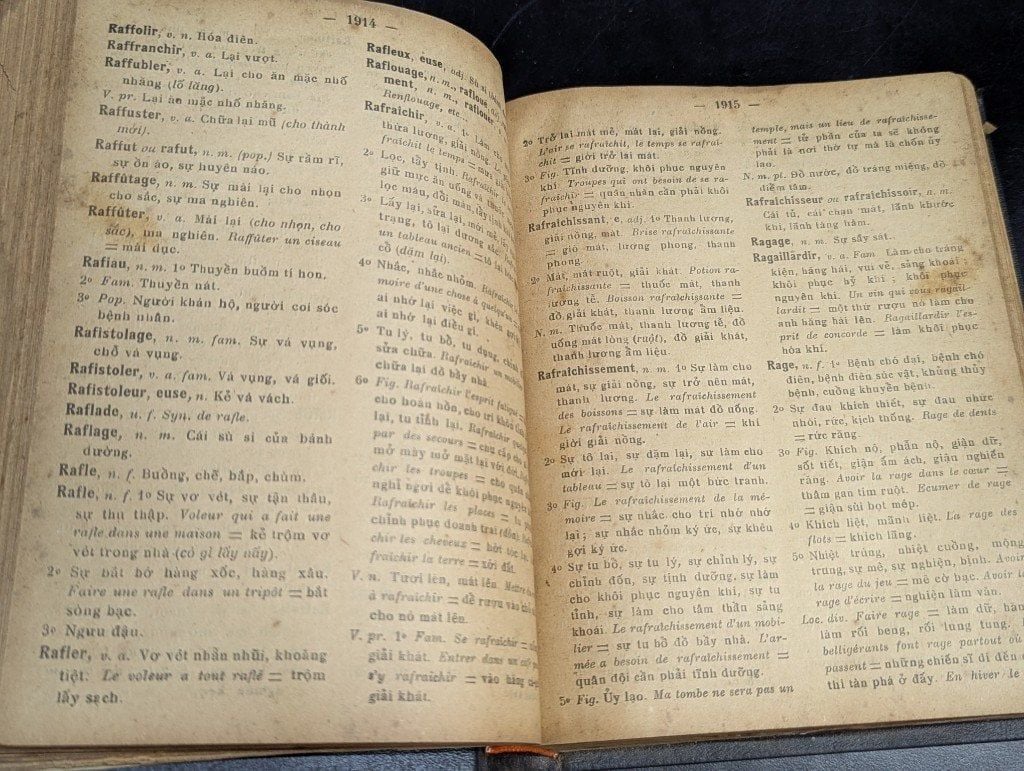 — 1914 —
Raffolir, v. n. Hóa điên.
Raffranchir, v. a. Lại vượt.
Raffubler, v. a. Lại cho ăn mặc nhố
nhăng (lố lăng).
V. pr. Lại ăn mặc nhố nhăng.
Raffuster, v. a. Chữa lại mũ (cho thành
mới).
Raffut ou rafut, n. m. (pop.) Sự rầm rĩ,
sự ồn ào, sự huyên náo.
Raffûtage, n. m. Sự mài lại cho nhọn
cho sắc, sự ma nghiên.
Raffûter, v. a. Mài lại (cho nhọn, cho
sắc), ma nghiên. Raffûter un ciseau
= mài dục.
Rafiau, n. m. 1º Thuyền buồm tí hon.
2º Fam. Thuyền nát.
3º Pop. Người khán hộ, người coi sóc
bệnh nhân.
Rafistolage, n. m. fam. Sự vá vụng,
chỗ vá vụng.
Rafistoler, v. a. fam. Vá vụng, vá giối.
Rafistoleur, euse, n. Kẻ vá vách.
Raflade, u. f. Syn. de rafle.
Raflage, n. m. Cái sù sì của bánh
đường.
Rafle, n. f. Buồng, chẽ, bắp, chùm.
Rafle, n. f. 1º Sự vơ vét, sự tận thâu,
sự thu thập. Voleur qui a fait une
rafle dans une maison = kẻ trộm vơ
vét trong nhà (có gì lấy nấy).
2º Sự bắt bớ hàng xốc, hàng xâu.
Faire une rafle dans un tripot = bắt
sòng bạc.
3º Ngưu đậu.
Rafler, v. a. Vơ vét nhẵn nhũi, khoảng
tiệt. Le voleur a tout raflé = trộm
lấy sạch.
Rafleux, euse, adj. Sù sì
Raflouage, n. m., rafloue
ment, n. m., raflouer
Renflouage, etc
Rafraîchir, v. a. 1º Làm
thừa lương, giải nồng.
fraîchit le temps = mưa
2º Lọc, tẩy tịnh. Rafraîchir
giữ mực ăn uống và
lọc máu, đổi màn, lấy tinh
3º Lấy lại, sửa lại, mới mẻ,
trạng, tô lại dương sắc.
un tableau ancien = tô lại
cổ (dặm lại).
4º Nhắc, nhắc nhỏm. Rafraîchir
moire d'une chose à quelqu'un
ai nhớ lại việc gì, khêu
ai nhớ lại điều gì.
5º Tu lý, tu bổ, tu dụng, chỉnh
sửa chữa. Rafraîchir un mobilier
chữa lại đồ bầy nhà.
6º Fig. Rafraîchir l'esprit fatigué =
cho hoàn hồn, cho trí khôn
lại, tu tỉnh lại. Rafraîchir
par des secours = chu cấp cho
mở mày mở mặt lại với đời.
chir les troupes = cho quân
nghỉ ngơi để khôi phục nguyên
Rafraîchir les places = tu
chỉnh phục doanh trại (đồn).
chir les cheveux = hớt tóc lại.
fraîchir la terre = xới đất.
V. n. Tươi lên, mát lên. Mettre
à rafraîchir = để rượu vào chỗ
cho nó mát lên.
V. pr. 1º Fam. Se rafraîchir =
giải khát. Entrer dans un café
s'y rafraîchir = vào hàng
giải khát.
— 1915 —
2º Trở lại mát mẻ, mát lại, giải nồng.
L'air se rafraîchit, le temps se rafraî-
chit = giời trở lại mát.
3º Fig. Tĩnh dưỡng, khôi phục nguyên
khí. Troupes qui ont besoin de se ra-
fraîchir = quân nhân cần phải khôi
phục nguyên khí.
Rafraîchissant, e, adj. 1º Thanh lương,
giải nồng, mát. Brise rafraîchissante
= gió mát, lương phong, thanh
phong.
2º Mát, mát ruột, giải khát. Potion ra-
fraîchissante = thuốc mát, thanh
lương tễ. Boisson rafraîchissante =
đồ giải khát, thanh lương ẩm liệu.
N. m. Thuốc mát, thanh lương tễ, đồ
uống mát lòng (ruột), đồ giải khát,
thanh lương ẩm liệu.
Rafraîchissement, n. m. 1º Sự làm cho
mát, sự giải nồng, sự trở nên mát,
thanh lương. Le rafraîchissement
des boissons = sự làm mát đồ uống.
Le rafraîchissement de l'air = khí
giời giải nồng.
2º Sự tô lại, sự dặm lại, sự làm cho
mới lại. Le rafraîchissement d'un
tableau = sự tô lại một bức tranh.
3º Fig. Le rafraîchissement de la mé-
moire = sự nhắc cho trí nhớ nhớ
lại; sự nhắc nhỏm ký ức, sự khêu
gợi ký ức.
4º Sự tu bổ, sự tu lý, sự chỉnh lý, sự
chỉnh đốn, sự tịnh dưỡng, sự làm
cho khôi phục nguyên khí, sự tu
tỉnh, sự làm cho tâm thần sảng
khoái. Le rafraîchissement d'un mobi-
lier = sự tu bổ đồ bầy nhà. L'ar-
mée a besoin de rafraîchissement =
quân đội cần phải tĩnh dưỡng.
5º Fig. Ủy lạo. Ma tombe ne sera pas un
temple, mais un lieu de rafraîchisse-
ment = tử phần của ta sẽ không
phải là nơi thờ tự mà là chốn ủy
lạo.
N. m. pl. Đồ nước, đồ tráng miệng, đồ
điểm tâm.
Rafraîchisseur ou rafraîchissoir, n. m.
Cái tủ, cái chạn mát, lãnh khước
khí, lãnh tàng hàm.
Ragage, n. m. Sự sầy sát.
Ragaillardir, v. a. Fam Làm cho tráng
kiện, hăng hái, vui vẻ, sảng khoái;
khôi phục hỷ khí; khôi phục
nguyên khí. Un vin qui vous ragail-
lardit = một thứ rượu nó làm cho
anh hăng hái lên. Ragaillardir l'es-
prit de concorde = làm khôi phục
hòa khí.
Rage, n. f. 1º Bệnh chó dại, bệnh chó
điên, bệnh điên súc vật, khủng thủy
bệnh, cuồng khuyển bệnh.
2º Sự đau khích thiết, sự đau nhức
nhối, rức, kịch thống. Rage de dents
= rức răng.
3º Fig. Khích nộ, phẫn nộ, giận dữ,
sốt tiết, giận ấm ách, giận nghiến
răng. Avoir la rage dans le cœur =
thâm gan tím ruột. Ecumer de rage
= giận sùi bọt mép.
4º Khích liệt, mãnh liệt. La rage des
flots = khích lãng.
5º Nhiệt trúng, nhiệt cuồng, mộng
trúng, sự mê, sự nghiện, bỉnh. Avoir
la rage du jeu = mê cờ bạc. Avoir la
rage d'écrire = nghiện làm văn.
Loc. div. Faire rage = làm dữ, hăn
làm rối beng, rối lung tung.
belligérants font rage partout où
passent = những chiến sĩ đi đến
thì tàn phá ở đấy. En hiver le